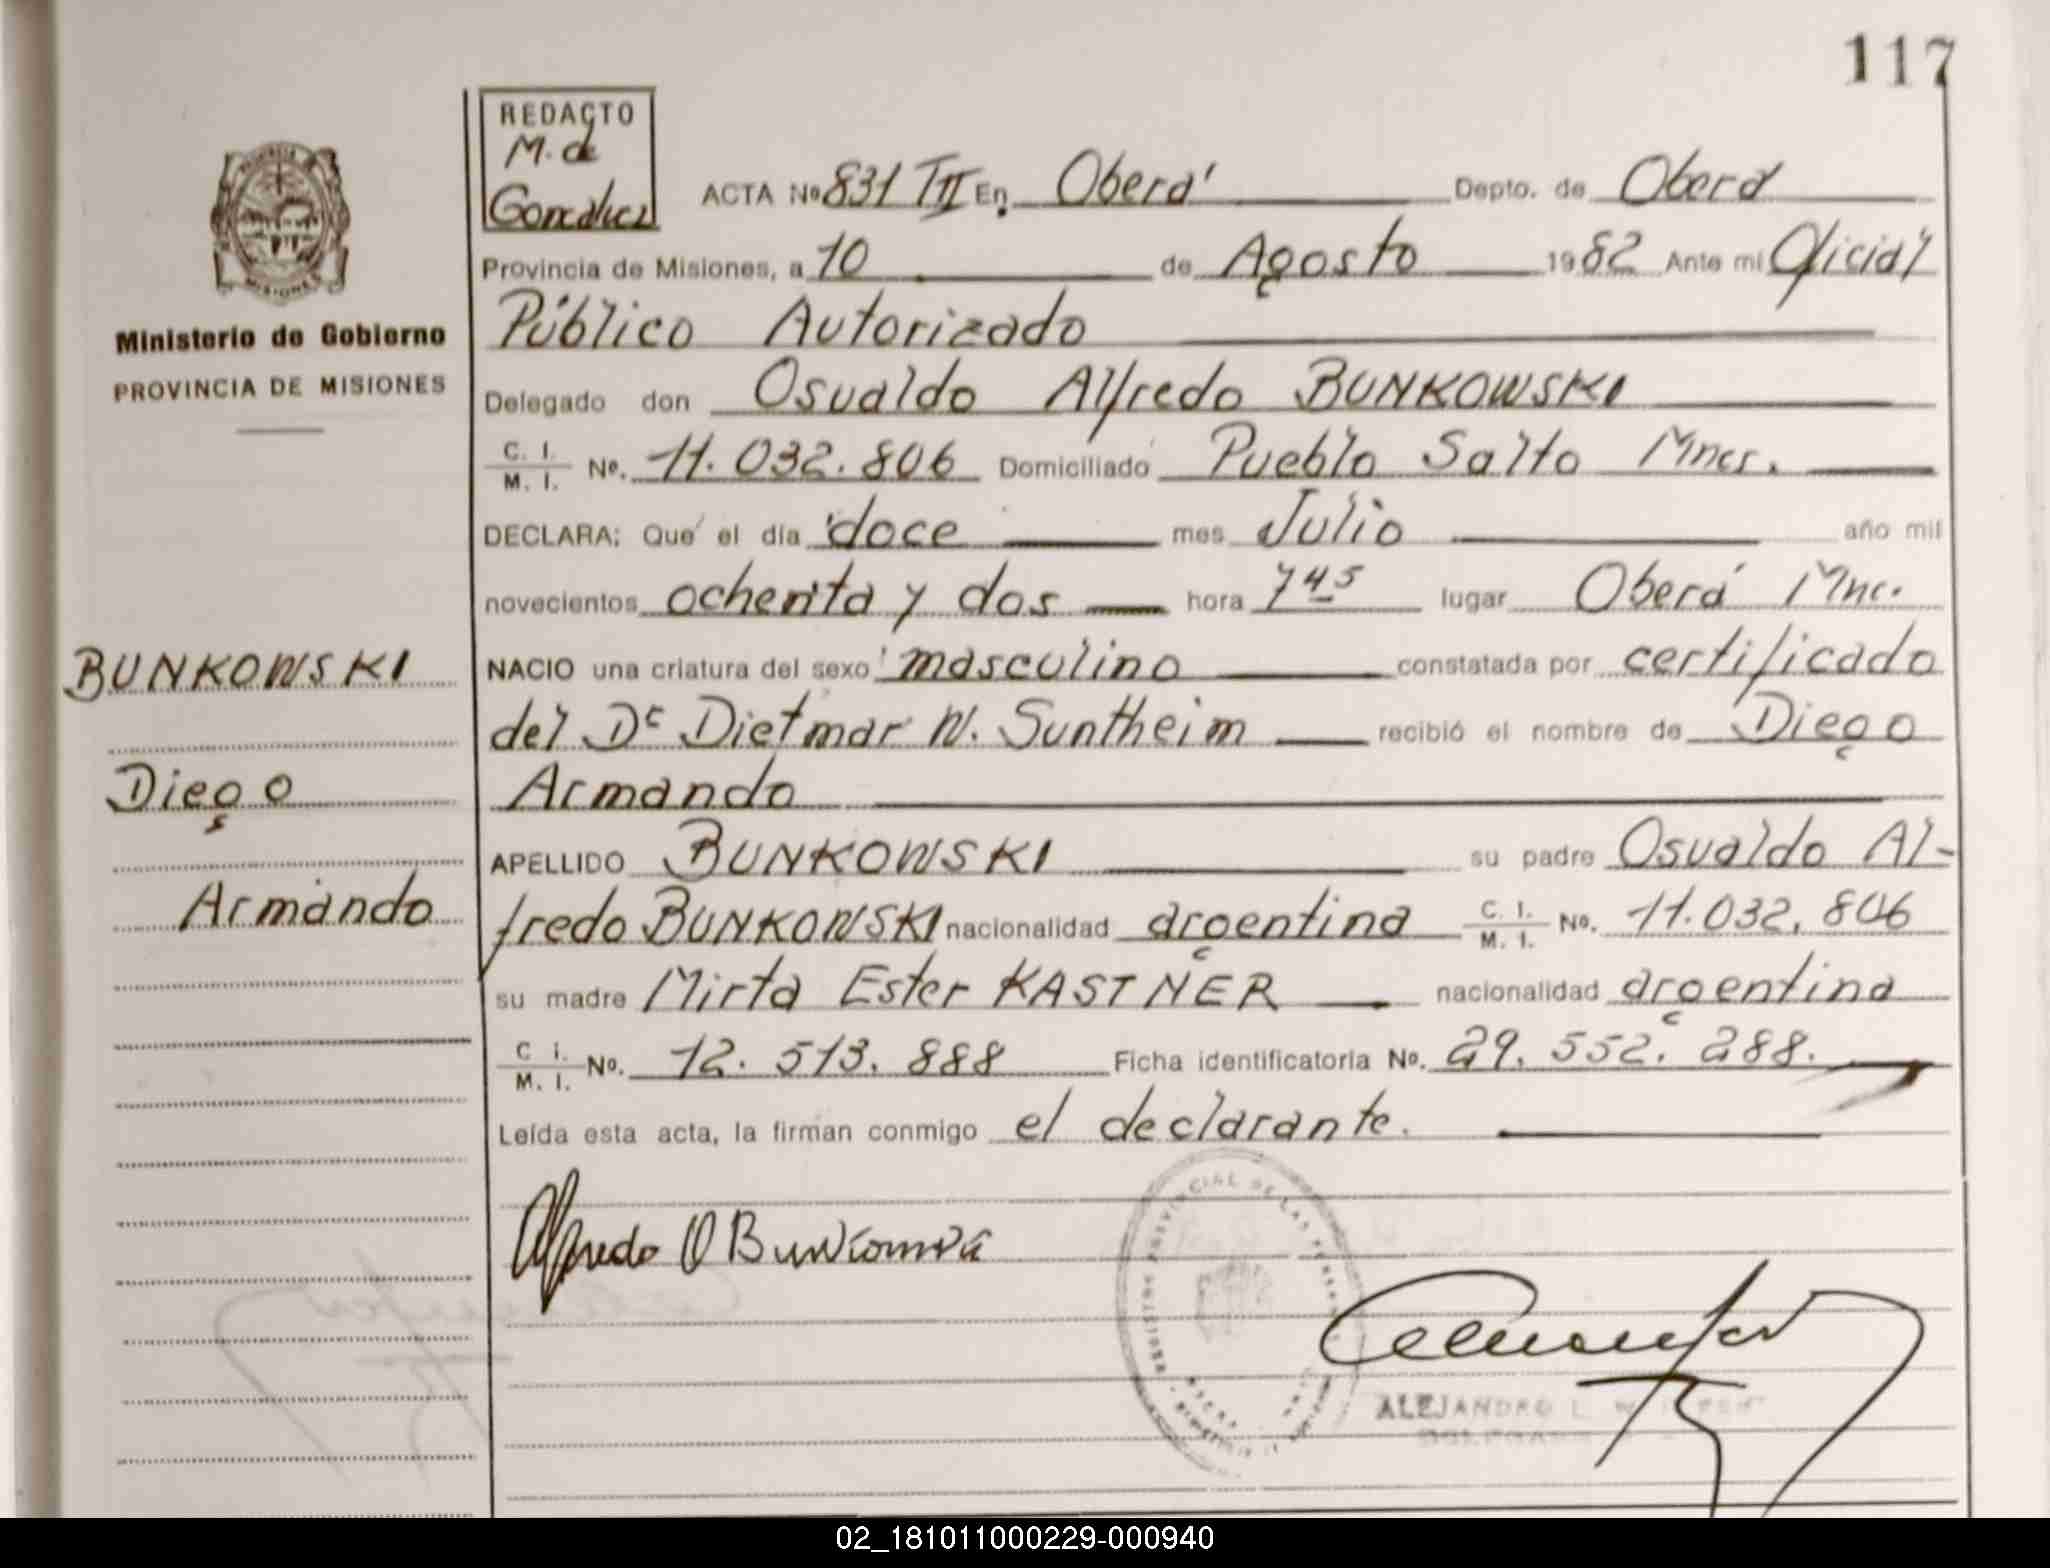 117
REDACTO
M. de
Gonzalez
ACTA Nº 831 TII En Oberá Depto. de Oberá
Provincia de Misiones, a 10 de Agosto 1982 Ante mi Oficial
Público Autorizado
Ministerio de Gobierno
PROVINCIA DE MISIONES
Delegado don Osvaldo Alfredo BUNKOWSKI
C. I. / M. I. Nº. 11.032.806 Domiciliado Pueblo Salto Mnes.
DECLARA: Que el día doce mes Julio año mil
novecientos ochenta y dos hora 7 45 lugar Oberá Mnes.
BUNKOWSKI
NACIO una criatura del sexo masculino constatada por certificado
del Dr Dietmar W. Suntheim recibió el nombre de Diego
Diego
Armando
APELLIDO BUNKOWSKI su padre Osvaldo Al-
Armando
fredo BUNKOWSKI nacionalidad argentina C. I. / M. I. Nº. 11.032.806
su madre Mirta Ester KASTNER nacionalidad argentina
C. I. / M. I. Nº. 12.513.888 Ficha identificatoria Nº. 29.552.288.
Leída esta acta, la firman conmigo el declarante.
Alfredo O Bunkowski
ALEJANDRO L.
02_181011000229-000940